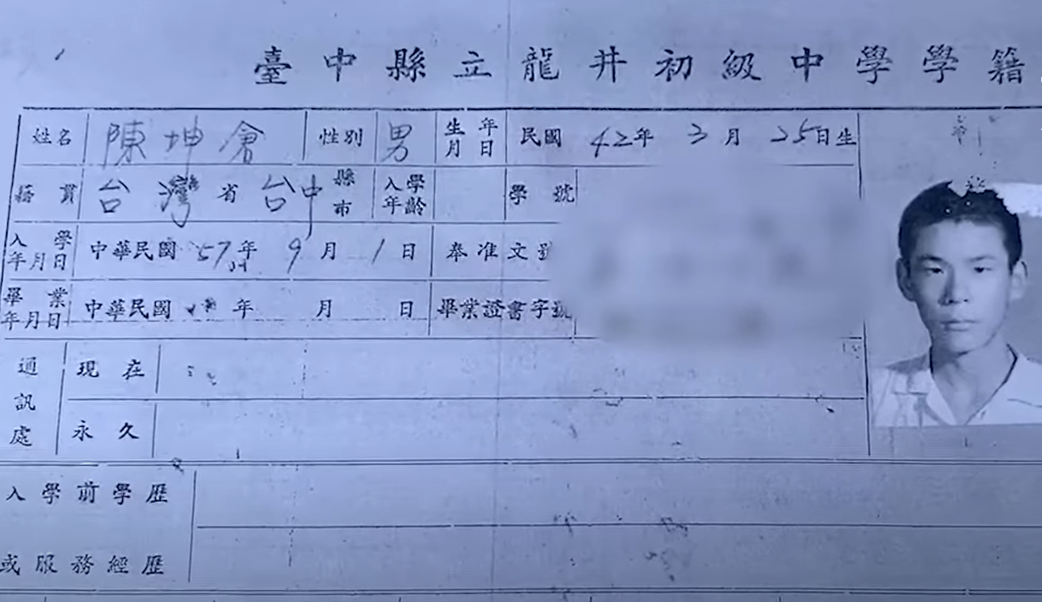 臺中縣立龍井初級中學學籍
姓名 陳坤倉 性別 男 生年月日 民國 42年 3月 25日生
籍貫 台灣省 台中 縣市 入學年齡 學號
入學年月日 中華民國 57年 9月 1日 奉准文號
畢業年月日 中華民國 年 月 日 畢業證書字號
通訊處 現在
永久
入學前學歷
或服務經歷